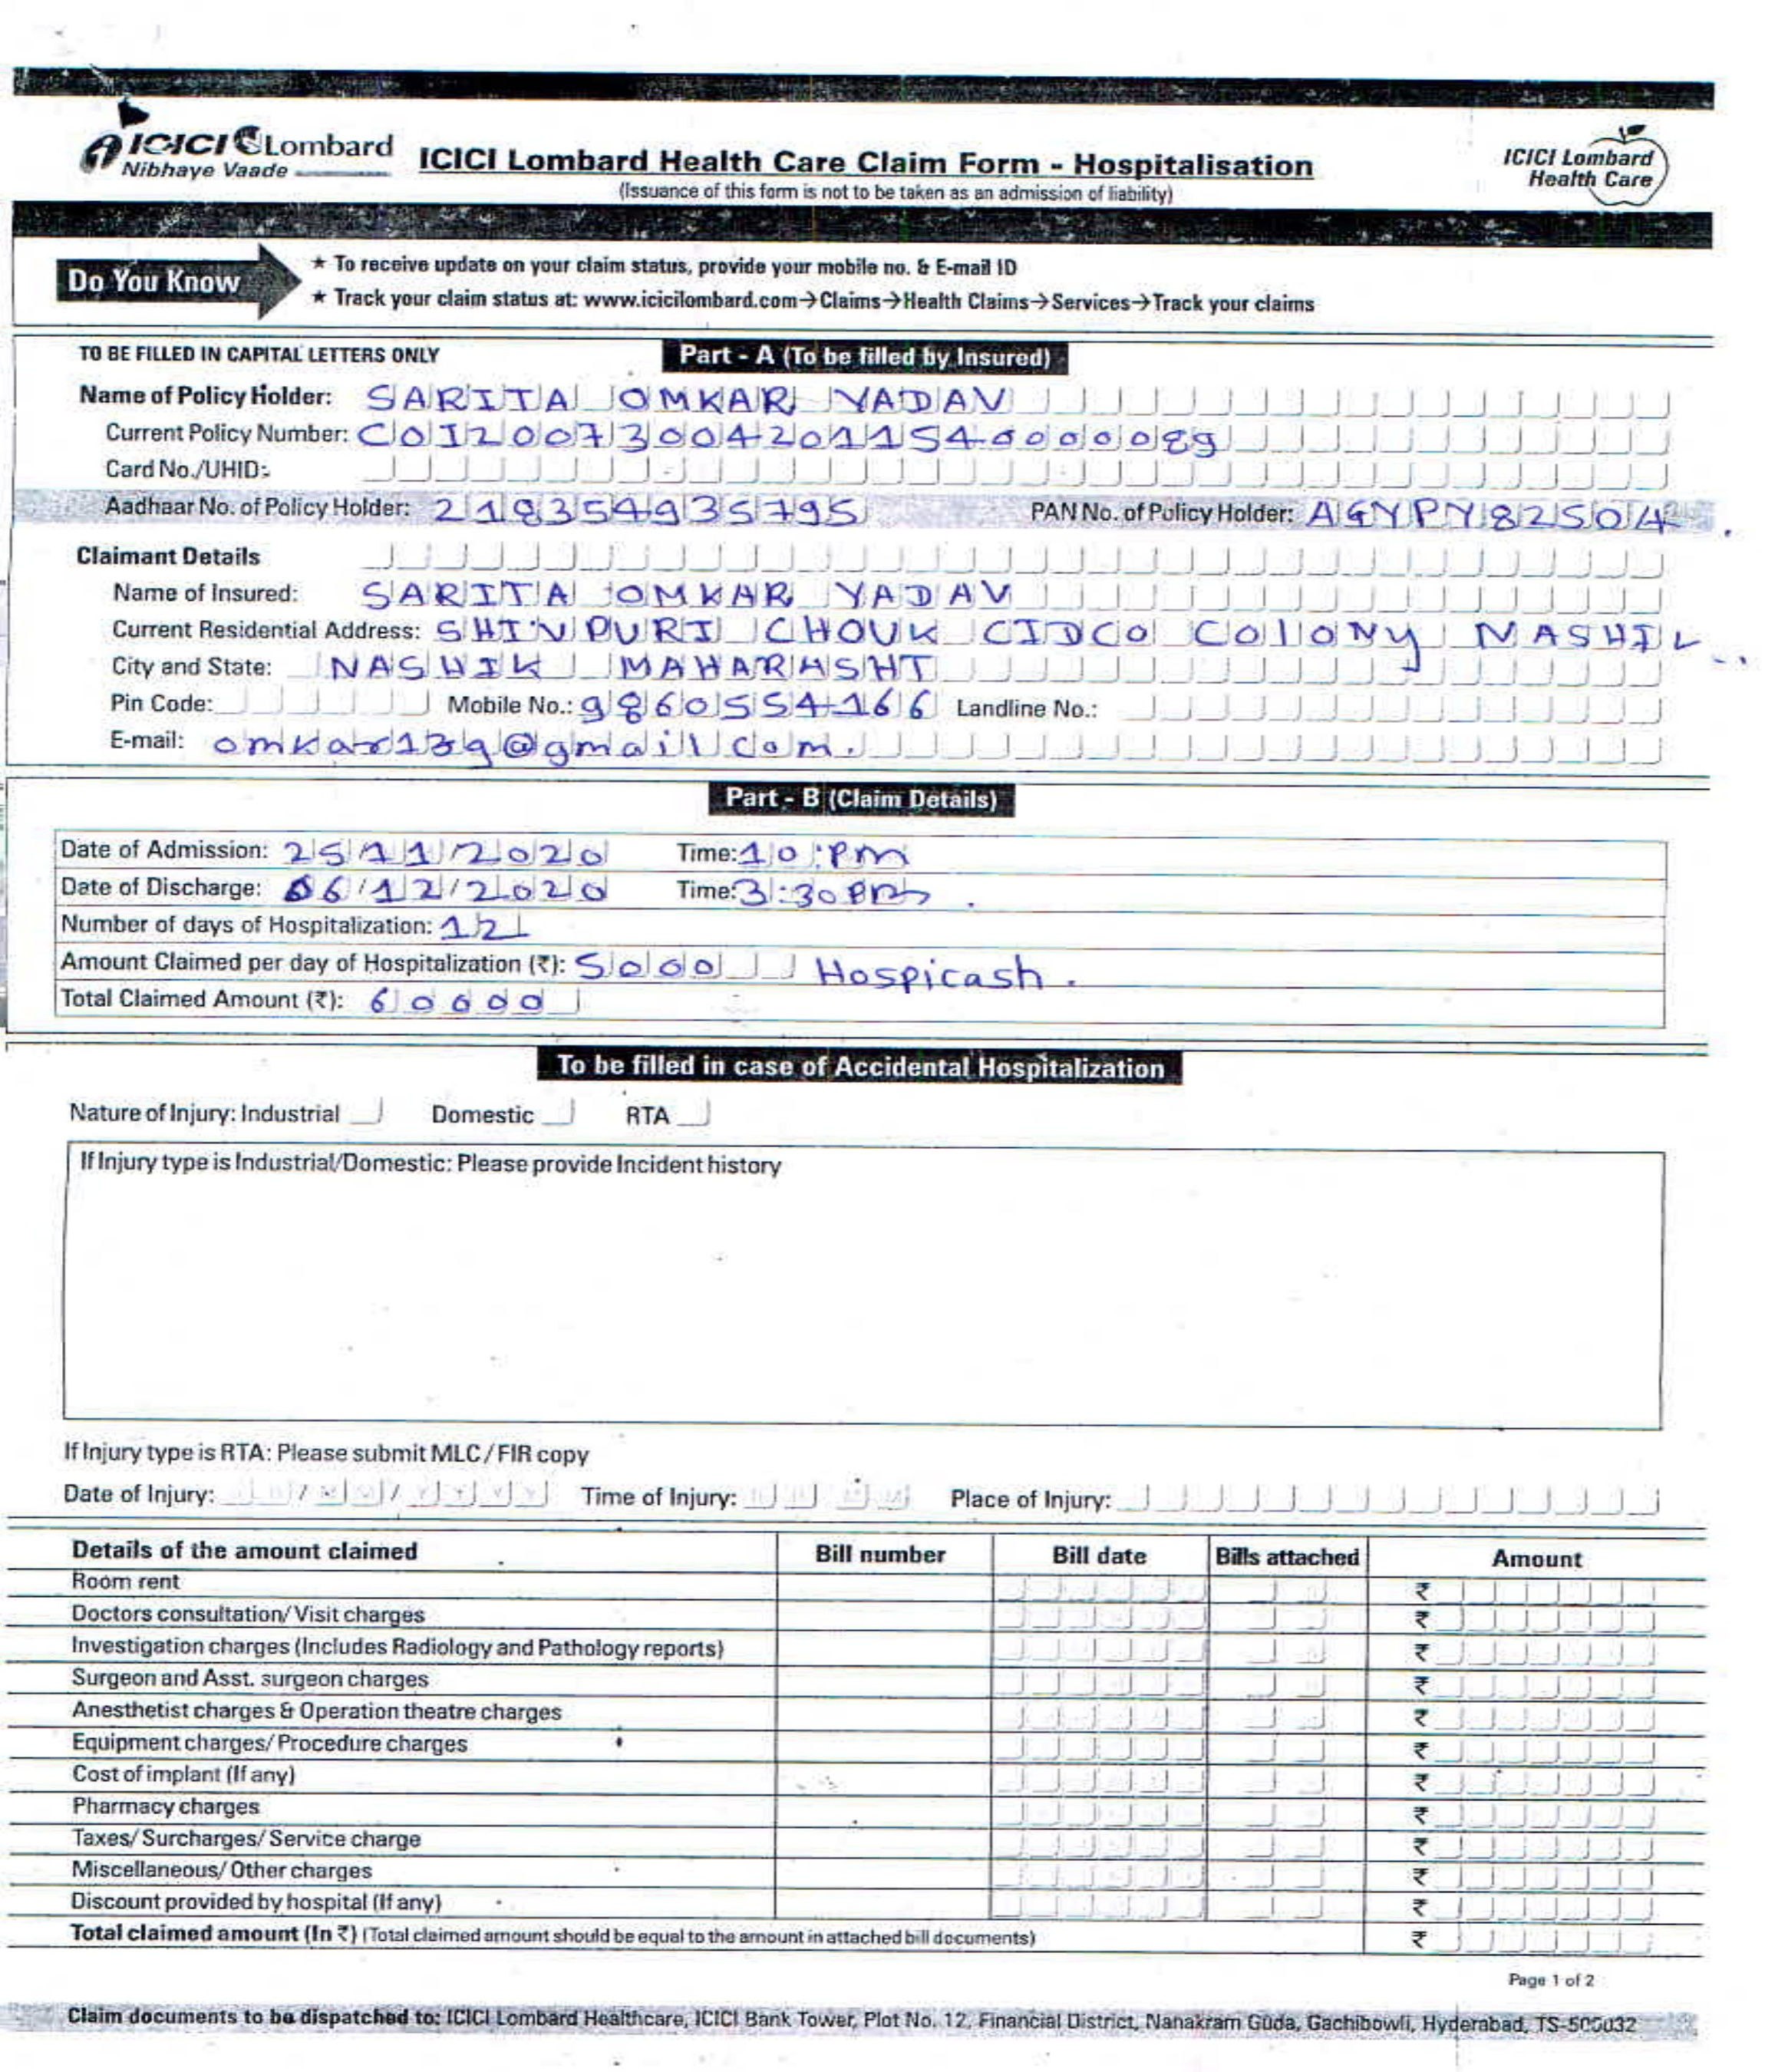 ICICI Lombard
Nibhaye Vaade
ICICI Lombard Health Care Claim Form - Hospitalisation
(Issuance of this form is not to be taken as an admission of liability)
ICICI Lombard
Health Care
Do You Know
★ To receive update on your claim status, provide your mobile no. & E-mail ID
★ Track your claim status at: www.icicilombard.com→Claims→Health Claims→Services→Track your claims
TO BE FILLED IN CAPITAL LETTERS ONLY
Part - A (To be filled by Insured)
Name of Policy Holder: SARITA OMKAR YADAV
Current Policy Number: COI200730042011540000089
Card No./UHID:
Aadhaar No. of Policy Holder: 219354935795 PAN No. of Policy Holder: AGYPY8250A
Claimant Details
Name of Insured: SARITA OMKAR YADAV
Current Residential Address: SHIVPURI CHOUK CIDCO COlONy NASHIK
City and State: NASHIK MAHARASHT
Pin Code: Mobile No.: 9860554166 Landline No.:
E-mail: omkar139@gmail.com.
Part - B (Claim Details)
Date of Admission: 25/11/2020 Time: 10:pm
Date of Discharge: 06/12/2020 Time: 3:30 pm
Number of days of Hospitalization: 12
Amount Claimed per day of Hospitalization (₹): 5000 Hospicash.
Total Claimed Amount (₹): 60000
To be filled in case of Accidental Hospitalization
Nature of Injury: Industrial Domestic RTA
If Injury type is Industrial/Domestic: Please provide Incident history
If Injury type is RTA: Please submit MLC/FIR copy
Date of Injury: Time of Injury: Place of Injury:
Details of the amount claimed Bill number Bill date Bills attached Amount
Room rent ₹
Doctors consultation/Visit charges ₹
Investigation charges (Includes Radiology and Pathology reports) ₹
Surgeon and Asst. surgeon charges ₹
Anesthetist charges & Operation theatre charges ₹
Equipment charges/Procedure charges ₹
Cost of implant (If any) ₹
Pharmacy charges ₹
Taxes/Surcharges/Service charge ₹
Miscellaneous/Other charges ₹
Discount provided by hospital (If any) ₹
Total claimed amount (In ₹) (Total claimed amount should be equal to the amount in attached bill documents) ₹
Page 1 of 2
Claim documents to be dispatched to: ICICI Lombard Healthcare, ICICI Bank Tower, Plot No. 12, Financial District, Nanakram Guda, Gachibowli, Hyderabad, TS-500032